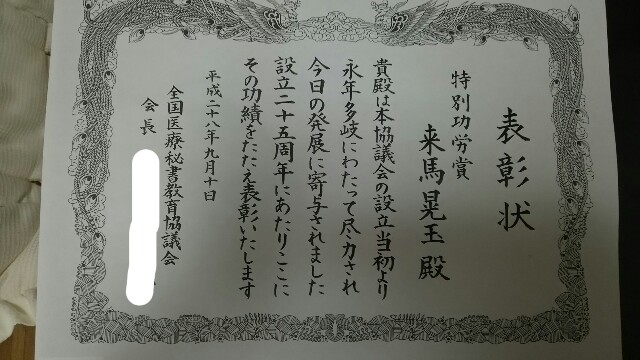 表彰状
特別功労賞
来馬晃玉殿
貴殿は本協議会の設立当初より
永年多岐にわたって尽力され
今日の発展に寄与されました
設立二十五周年にあたりここに
その功績をたたえ表彰いたします
平成二十八年九月十日
全国医療秘書教育協議会
会長